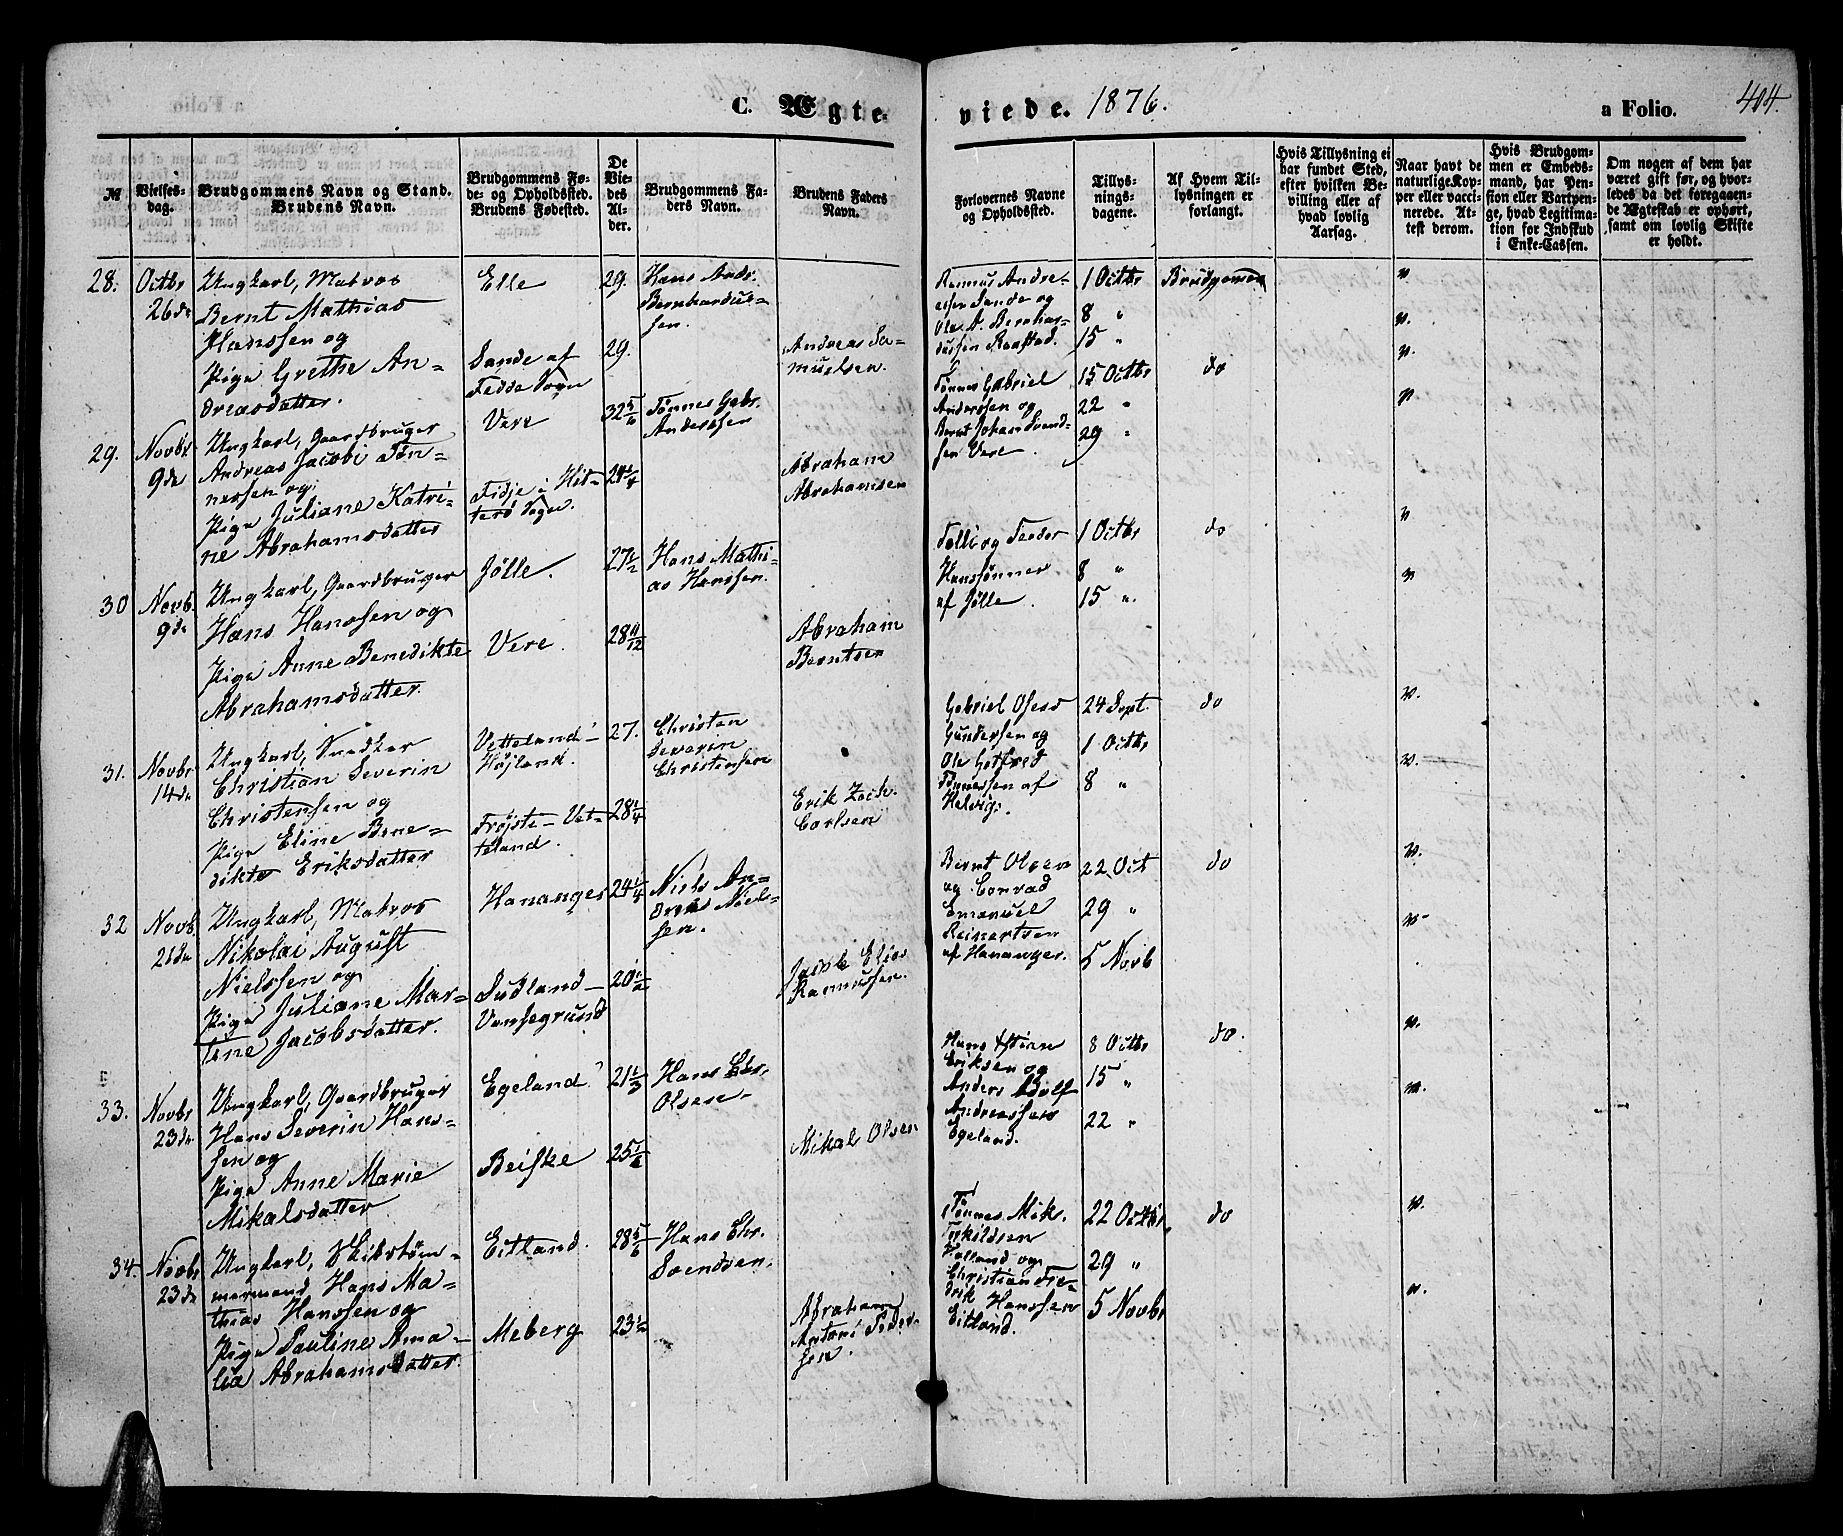 C. Ægte-
viede. 1876.
a Folio.
404
№
Vielses-
dag.
Brudgommens Navn og Stand.
Brudens Navn.
Brudgommens Fø-
de- og Opholdssted.
Brudens Fødested.
De
Vie-
des
Al-
der.
Brudgommens Fa-
ders Navn.
Brudens Faders
Navn.
Forlovernes Navne
og Opholdssted.
Tillys-
nings-
dagene.
Af Hvem Til-
lysningen er
forlangt.
Hvis Tillysning ei
har fundet Sted,
efter hvilken Be-
villing eller af
hvad lovlig
Aarsag.
Naar havt de
naturlige Kop-
per eller vacci-
nerede. At-
test derom.
Hvis Brudgom-
men er Embeds-
mand, har Pen-
sion eller Vartpen-
ge, hvad Legitima-
tion for Indskud
i Enke-Cassen.
Om nogen af dem har
været gift før, og hvor-
ledes da det foregaaen-
de Ægteskab er ophørt,
samt om lovlig Skifte
er holdt.
28.
Octbr
26de
Ungkarl, Matros
Bernt Mathias
Hanssen og
Pige Grethe An-
dreasdatter.
Elle
Sande af
Fedde Sogn
29.
29.
Hans Andr.
Bernhardus-
sen.
Andreas Sa-
muelsen.
Rasmus Andre-
assen Sande og
Ole A. Bernhar-
dussen Raastad.
1 Octbr
8 "
15 "
Brudgommen
v.
v.
29.
Novbr
9de
Ungkarl, Gaardbruger
Andreas Jacobi Tøn-
nessen og
Pige Juliane Katri-
ne Abrahamsdatter
Vere
Fidje i Hit-
terø Sogn.
32 5/6
24 1/4
Tønnes Gabr.
Anderssen
Abraham
Abrahamsen
Tønnes Gabriel
Anderssen og
Bernt Johan Svend-
sen Vere.
15 Octbr
22 "
29 "
do
v.
v
30
Novb.
9de
Ungkarl, Gaardbruger
Hans Hanssen og
Pige Anne Benedikte
Abrahamsdatter.
Jølle.
Vere.
27 1/2
28 11/12
Hans Mathi-
as Hanssen.
Abraham
Berntsen
Tolli og Teodor
Hanssønner
af Jølle.
1 Octbr
8 "
15 ".
do
v
v
31.
Novbr
14de
Ungkarl, Snedker
Christian Severin
Christensen og
Pige Eline Bene-
dikte Eriksdatter
Vetteland-
Højland.
Trøjste-Vet-
teland.
27.
28 1/4
Christen
Severin
Christensen
Erik Zach.
Carlsen
Gabriel Olees
Gundersen og
Ole Gotfred
Tønnessen af
Helvig.
24 Sept.
1 Octbr
8 "
do
v.
v.
32
Novb.
21de
Ungkarl, Matros
Nikolai August
Nielssen og
Pige Juliane Mar-
tine Jacobsdatter.
Hananger
Sudland-
Vansegrund
24 1/4
20 1/2
Niels An-
dreas Niels-
sen.
Jacob Elias
Rasmussen.
Bernt Olsen
og Conrad
Emanuel
Reinertsen
af Hananger.
22 Oct
29 "
5 Novb
do
v.
v.
33.
Novbr
23de
Ungkarl, Gaardbruger
Hans Severin Hans-
sen og
Pige Anne Marie
Mikalsdatter
Egeland.
Beiske
21 1/3
25 1/6
Hans Chr.
Olsen.
Mikal Olsen
Hans Xstian
Eriksen og
Anders Adolf
Andreassen
Egeland.
8 Octbr
15 "
22 "
do.
v.
v.
34.
Novbr
23de
Ungkarl, Skibstøm-
mermand Hans Ma-
thias Hanssen og
Pige Pauline Ama-
lia Abrahamsdatter.
Eitland.
Meberg
28 5/6
23 1/2
Hans Chr.
Svendsen.
Abraham
Antoni Peder-
sen.
Tønnes Mik.
Torkildsen
Kalland og
Christian Fre-
drik Hanssen
Eitland.
22 Octbr
29 "
5 Novbr
do
v.
v.